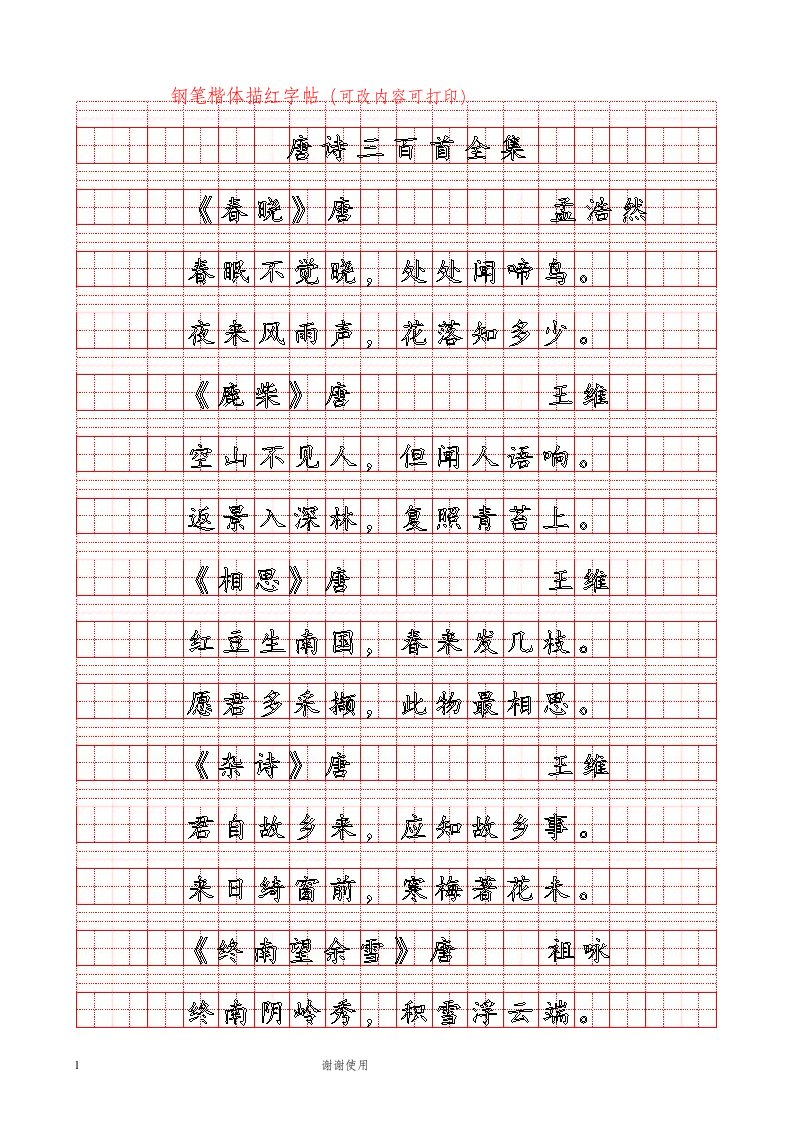 钢笔楷体描红字帖（可改内容可打印）
唐诗三百首全集
《春晓》唐 孟浩然
春眠不觉晓，处处闻啼鸟。
夜来风雨声，花落知多少。
《鹿柴》唐 王维
空山不见人，但闻人语响。
返景入深林，复照青苔上。
《相思》唐 王维
红豆生南国，春来发几枝。
愿君多采撷，此物最相思。
《杂诗》唐 王维
君自故乡来，应知故乡事。
来日绮窗前，寒梅著花未。
《终南望余雪》唐 祖咏
终南阴岭秀，积雪浮云端。
1 谢谢使用